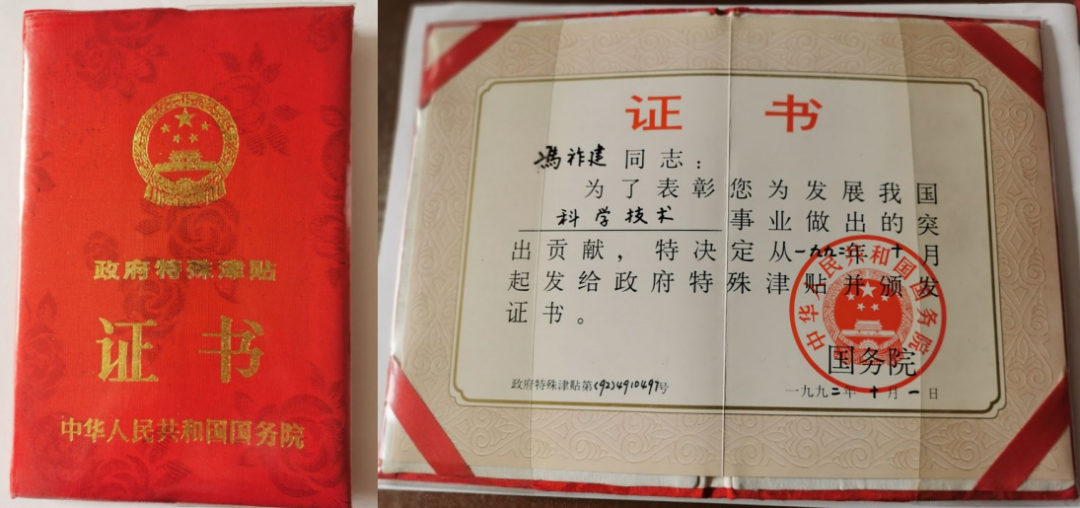 政府特殊津贴
证书
中华人民共和国国务院
证书
冯祚建同志：
为了表彰您为发展我国
科学技术 事业做出的突
出贡献，特决定从一九九二年十月
起发给政府特殊津贴并颁发
证书。
中华人民共和国国务院
国务院
政府特殊津贴第(92)4910497号
一九九二年十月一日